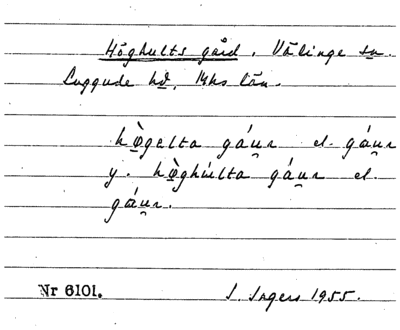 Höghults gård. Välinge sn.
Luggude hd, Mhs län.
hø̀gelta gáu̯ʀ el. gáu̯ʀ
y. hø̀ghùlta gáu̯ʀ el.
gáu̯ʀ.
Nr 6101. I. Ingers 1955.